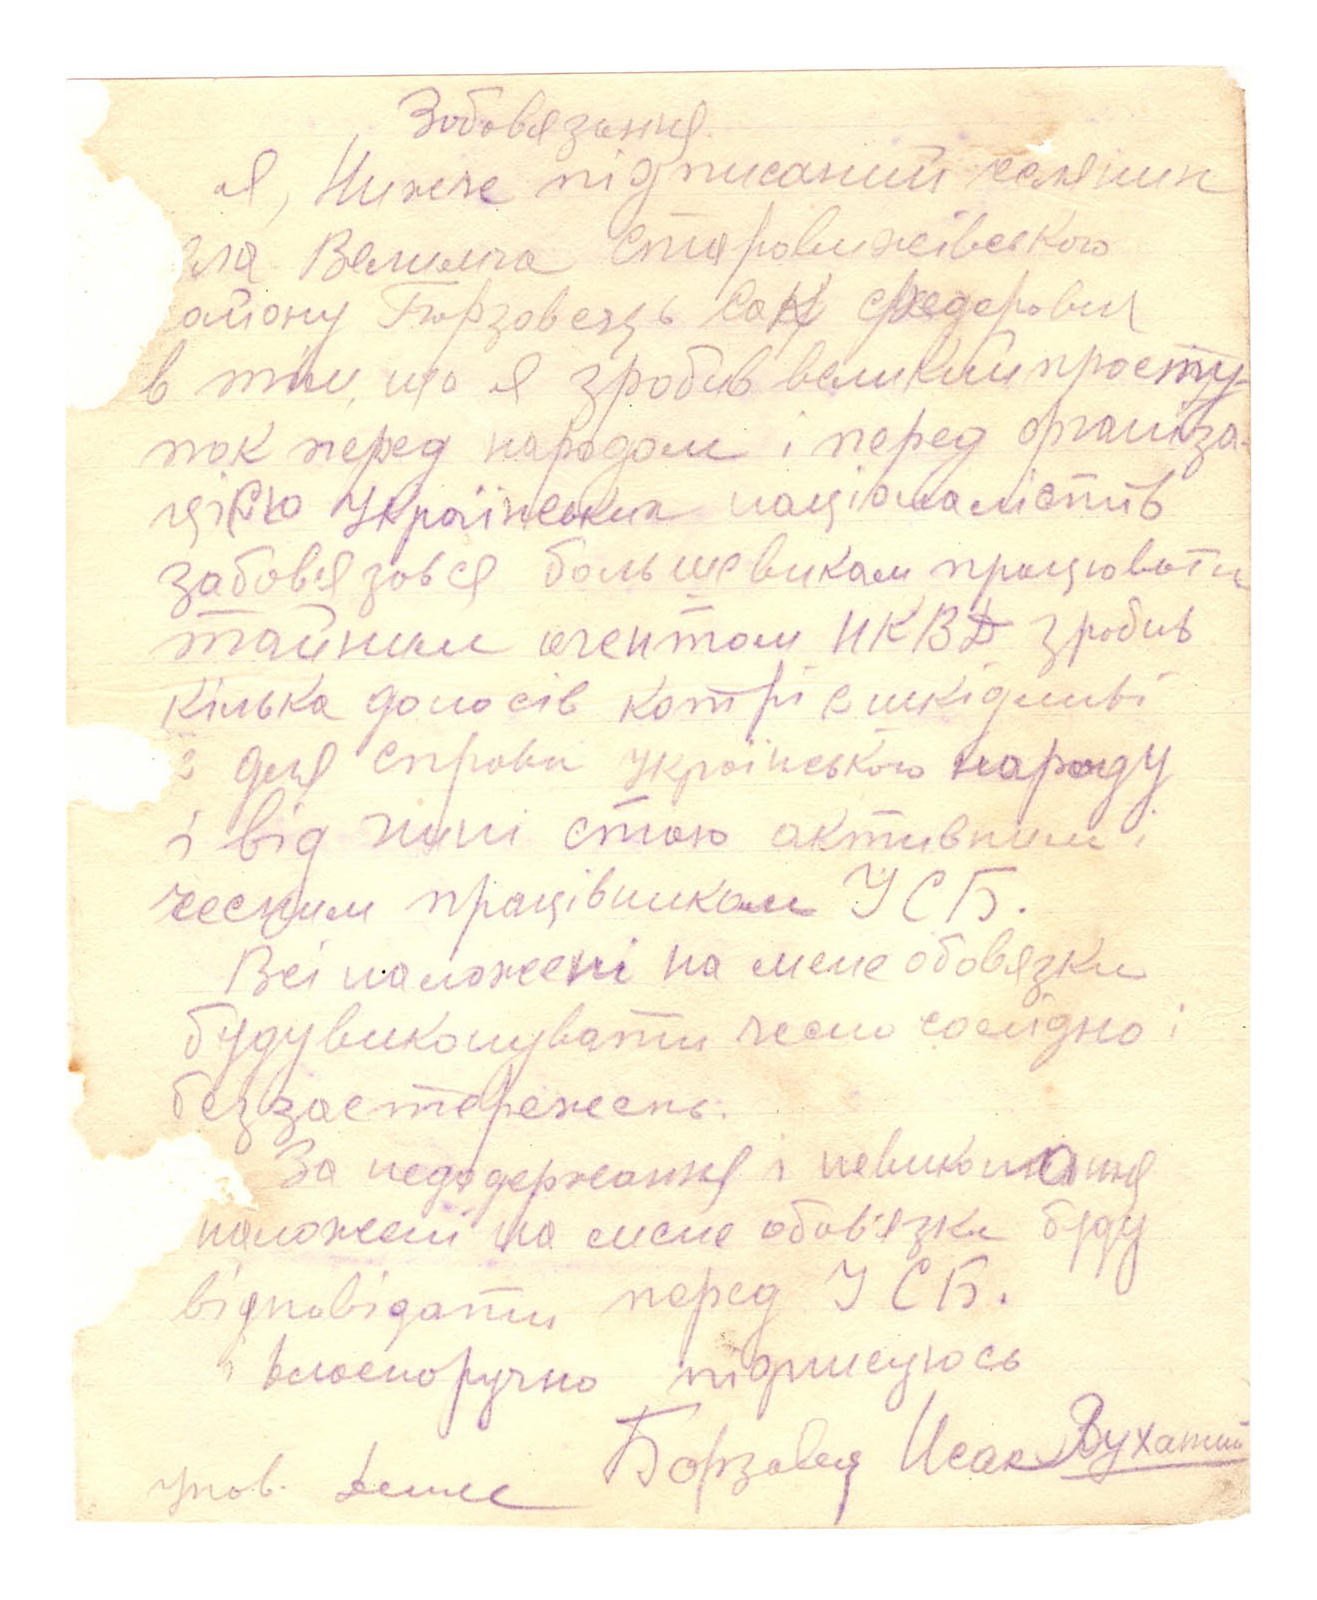 Зобовязання.
я, Нижче підписаний селянин
ела Велимча Старовижівського
айону Борзовець Сак Федорович
в тім, що я зробив великий просту-
пок перед народом і перед організа-
цією Українських націоналістів
забовязався большевикам працювати
тайним агентом НКВД зробив
кілька доносів котрі є шкідливі
є для справи українського народу
і від нині стаю активним і
чесним працівником УСБ.
Всі наложені на мене обовязки
буду виконувати чесно солідно і
без застережень.
За недодержання і невиконання
наложені на мене обов'язки буду
відповідати перед УСБ.
і власноручно підписуюсь
Борзовец Исак Вухатий
упов.